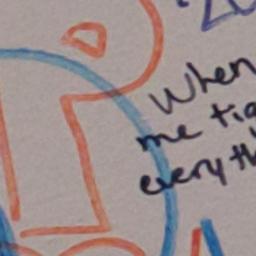 When
me tig
everyth